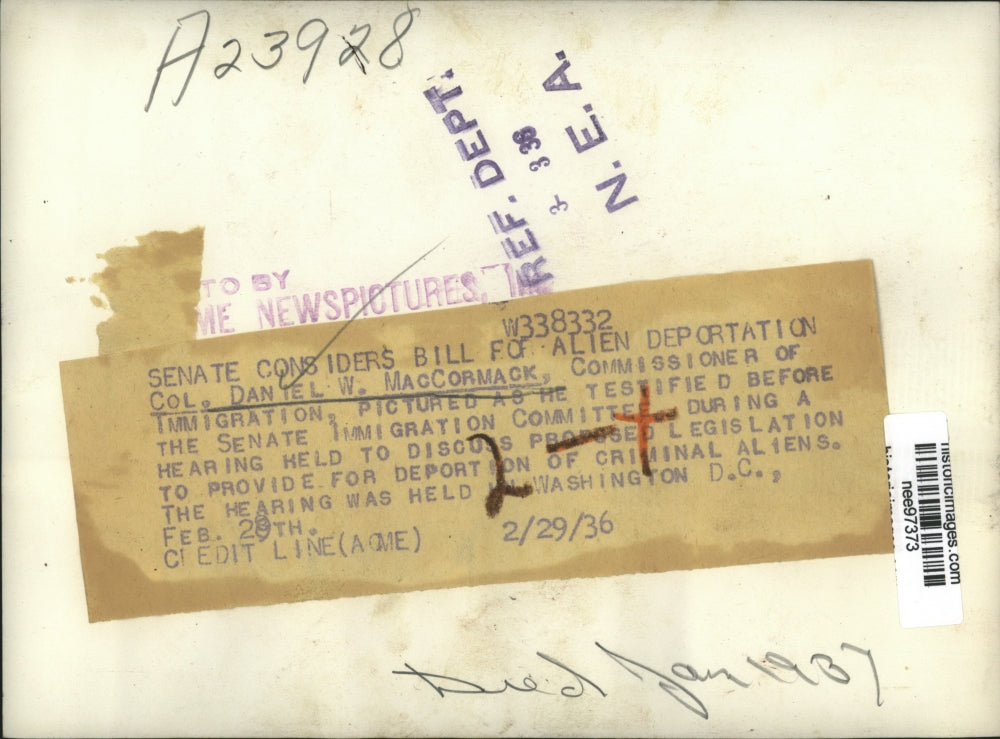 A23928
REF. DEPT.
3- 3 36
N. E. A.
TO BY
ME NEWSPICTURES,
W338332
SENATE CONSIDERS BILL FOR ALIEN DEPORTATION
COL. DANIEL W. MACCORMACK, COMMISSIONER OF
IMMIGRATION, PICTURED AS HE TESTIFIED BEFORE
THE SENATE IMMIGRATION COMMITTEE DURING A
HEARING HELD TO DISCUSS PROPOSED LEGISLATION
TO PROVIDE FOR DEPORTION OF CRIMINAL ALIENS.
THE HEARING WAS HELD IN WASHINGTON D.C.,
FEB. 29TH.
CREDIT LINE(ACME) 2/29/36
2-+
historicimages.com
nee97373
Died Jan 1937